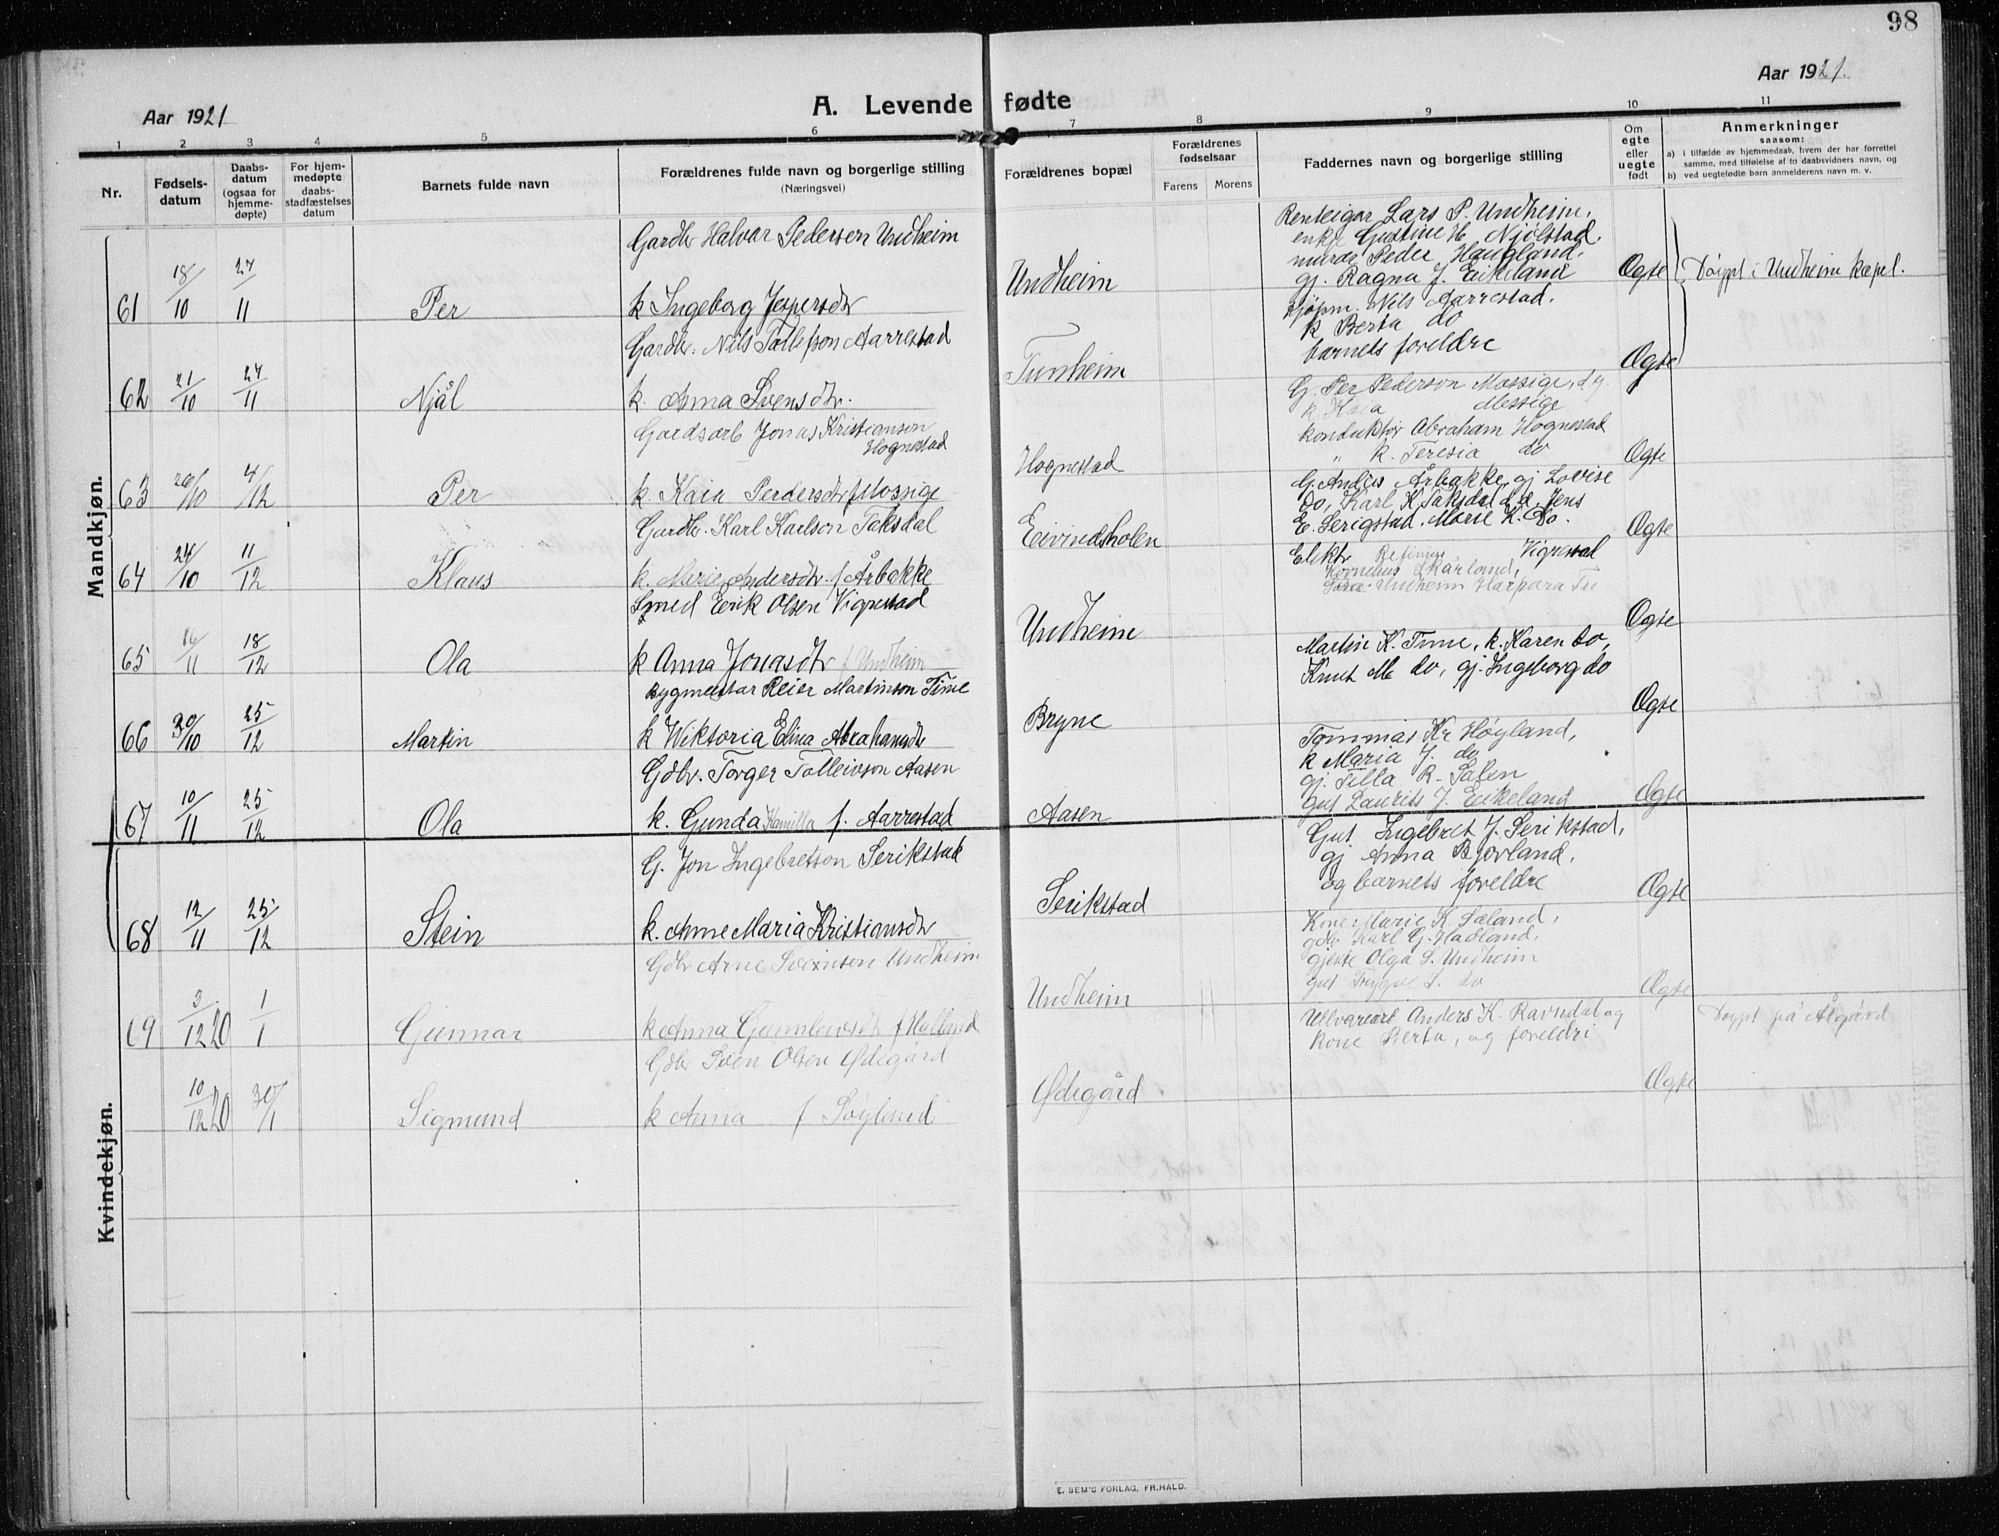 98
Aar 1921
Aar 1921.
A. Levende fødte
1 2 3 4 5 6 7 8 9 10 11
Nr.
Fødsels-
datum
Daabs-
datum
(ogsaa for
hjemme-
døpte)
For hjem-
medøpte
daabs-
stadfæstelses
datum
Barnets fulde navn
Forældrenes fulde navn og borgerlige stilling
(Næringsvei)
Forældrenes bopæl
Forældrenes
fødselsaar
Farens Morens
Faddernes navn og borgerlige stilling
Om
egte
eller
uegte
født
Anmerkninger
saasom:
a) i tilfælde av hjemmedaab, hvem der har forrettet
samme, med tilføielse af to daabsvidners navn, og
b) ved uegtefødte barn anmelderens navn m. v.
Mandkjøn.
61 18/10 27/11 Per
Gardbr Halvar Pedersen Undheim
k Ingeborg Jespersdtr
Undheim
Renteigar Lars P. Undheim,
enke Gustine H Njølstad.
murar Peder Haugland.
gj. Ragna J. Eikeland
Øgte
Døypt i Undheim kapel.
62 21/10 27/11 Njål
Gardbr. Nils Tollefson Aarrestad
k. Anna Svensdtr.
Tunheim
kjøpm. Nils Aarrestad.
k Berta do
barnets foreldre
Øgte
63 20/10 4/12 Per
Gardsarb Jonas Kristianson
Hognestad
k. Kaia Pedersdtr f Mossige
Hognestad
G. Per Pederson Mossige, d.y.
k Kaia Messige
konduktør Abraham Hognestad
" k. Teresia do
Øgte
64 24/10 11/12 Klaus
Gardbr. Karl Karlson Taksdal
k. Marie Andersdtr. f Årbakke
Eivindsholen
G. Andus Årbakke, gj Lovise
do, Karl K Taksdal d.e. Jens
E. Serigstad, Marie K. do.
Øgte
65 16/11 18/12 Ola
Smed Eirik Olsen Vigrestad
k Anna Jonasdtr f Undheim
Undheim
Elektr Vigrestad
Kornelius Skarland,
Undheim
Øgte
66 30/10 25/12 Martin
Bygmestar Reier Martinson Time
k Wiktoria Elina Abrahamsdtr
Bryne
Martin K. Time, k. Karen do,
Knut M do, gj. Ingeborg do
Øgte
67 10/11 25/12 Ola
Gdbr. Torger Tolleivson Aasen
k. Gunda Kamilla f. Aarrestad
Aasen
Tommas Kr Høyland,
k Maria J. do
gj. Tilla R. Salen
gut Laurits J. Eikeland
Øgte
68 12/11 25/12 Stein
G. Jon Ingebretson Serikstad
k. Anne Maria Kristiansdtr
Serikstad
Gut. Ingebret J. Serikstad,
gj Anna Bjorland,
og barnets foreldre
Øgte
69 3/12 20 1/1 Gunnar
Gdbr Arne Sveinsen Undheim
k Anna Gunleivsdtr f Hadland
Undheim
Kone Marie K Fæland,
gdbr Karl G. Hadland,
gjente Olga S. Undheim
gut Trygve S. do
Øgte
Kvindekjøn.
10/12 20 30/1 Sigmund
Gdbr Svein Olsen Ødegård
k Anna f Søyland
Ødegård
Ullvarearb Anders K. Ravndal og
kone Berta, og foreldri
Øgte
Døypt på Ålgård
E. SEM'S FORLAG, FR.HALD.